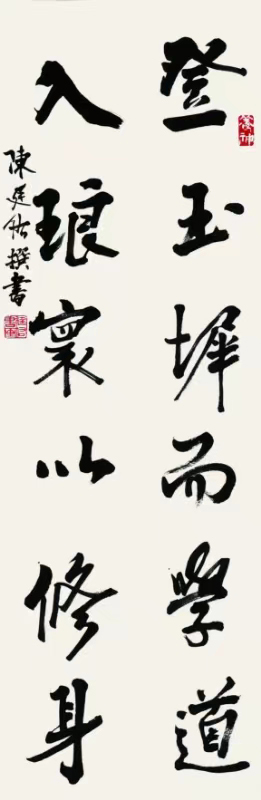 登玉墀而學道
入琅寰以修身
陳廷佑撰書